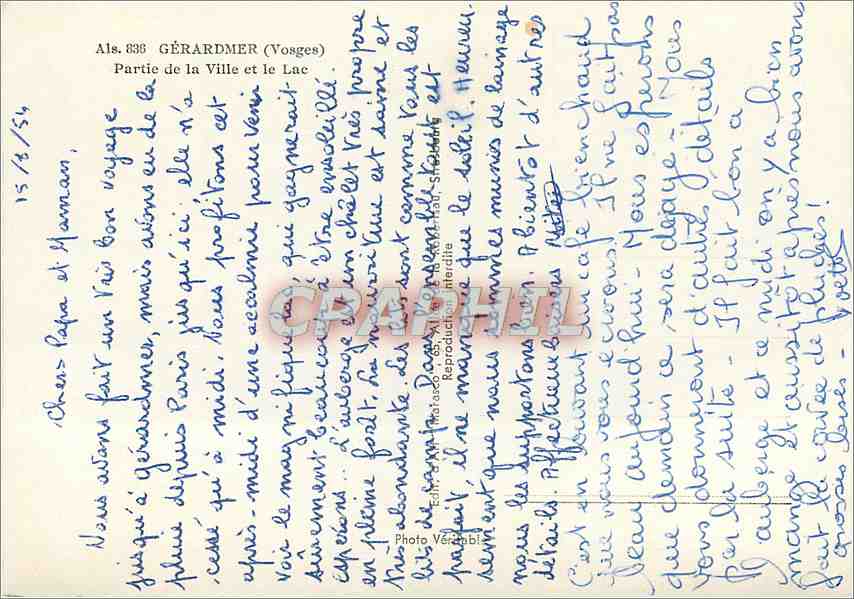 Als. 836 GÉRARDMER (Vosges)
Partie de la Ville et le Lac
Edit. d'Art
65, Allée de la Robertsau, Strasbourg
Reproduction interdite
Photo Véritable
CPAPHIL
15/8/54
Chers Papa et Maman,
Nous avons fait un très bon voyage
jusqu'à gérardmer, mais avons eu de la
pluie depuis Paris jusqu'ici elle n'a
cessé qu'à midi. Nous profitons cet
après-midi d'une accalmie pour venir
voir le magnifique lac qui gagnerait
sûrement beaucoup à être ensoleillé.
espérons.. L'auberge est un châlet très propre
en pleine forêt. La nourriture est saine et
très abondante. Les lits sont comme tous les
lits de camp. Dans ensemble tout est
parfait il ne manque que le soleil. Heureu-
sement que nous sommes munies de lainage
nous les supportons bien. A bientôt d'autres
détails. Affectueux baisers
C'est en buvant un café bien chaud
que nous vous écrivons! Il ne fait pas
beau aujourd'hui - Nous espérons
que demain ce sera dégagé - Nous
vous donneront d'autres détails
par la suite - Il fait bon a
l'auberge et ce midi on y a bien
mangé et aussitôt après nous avons
fait la corvée de pluches!
grosses bises - Yvette